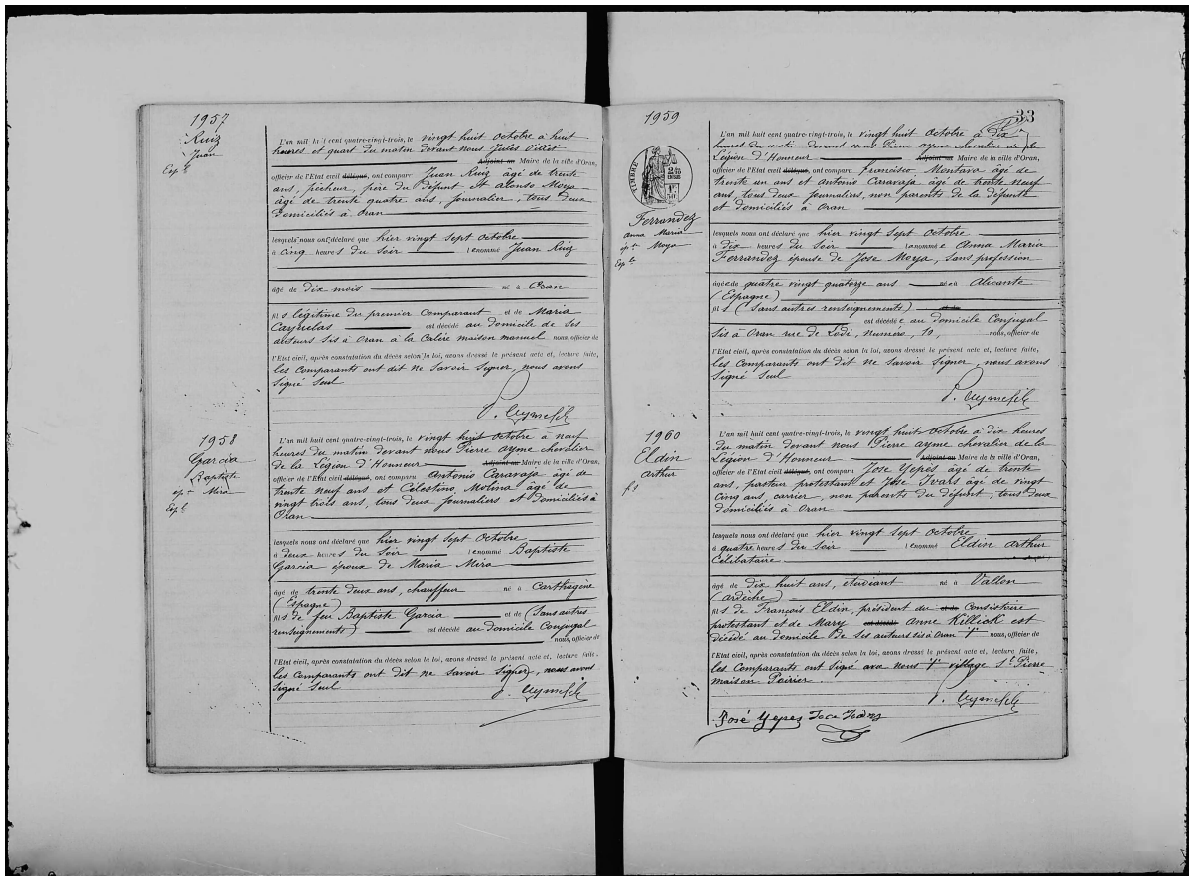 1957
Ruiz
Juan
Esp.l
L'an mil huit cent quatre-vingt-trois, le vingt huit octobre à huit
heures et quart du matin devant nous Jules
Adjoint au Maire de la ville d'Oran,
officier de l'Etat civil délégué, ont comparu Juan Ruiz âgé de trente
ans, pêcheur, père du défunt et alonso Moya
âgé de trente quatre ans, journalier, tous deux
domiciliés à Oran
lesquels nous ont déclaré que hier vingt sept octobre
à cinq heures du soir le nommé Juan Ruiz
âgé de dix mois né à Oran
fils légitime du premier comparant et de Maria
Cazuelas est décédé au domicile de ses
auteurs sis à Oran à la Calère maison manuel nous, officier de
l'Etat civil, après constatation du décès selon la loi, avons dressé le présent acte et, lecture faite,
les comparants ont dit ne savoir signer, nous avons
signé seul
1958
Garcia
Baptiste
ép.x Mira
Esp.l
L'an mil huit cent quatre-vingt-trois, le vingt huit octobre à neuf
heures du matin devant nous Pierre ayme chevalier
de la Légion d'Honneur Adjoint au Maire de la ville d'Oran,
officier de l'Etat civil délégué, ont comparu Antonio Caravaja âgé de
trente neuf ans et Célestino Molina âgé de
vingt trois ans, tous deux journaliers et domiciliés à
Oran
lesquels nous ont déclaré que hier vingt sept octobre
à deux heures du soir le nommé Baptiste
Garcia époux de Maria Mira
âgé de trente deux ans, chauffeur né à Carthagène
(Espagne)
fils de feu Baptiste Garcia et de (sans autres
renseignements) est décédé au domicile conjugal
nous, officier de
l'Etat civil, après constatation du décès selon la loi, avons dressé le présent acte et, lecture faite,
les comparants ont dit ne savoir signer, nous avons
signé seul
33
1959
TIMBRE
Ferrandez
anna Maria
ép.se Moya
Esp.le
L'an mil huit cent quatre-vingt-trois, le vingt huit octobre à dix
heures du matin devant nous Pierre ayme chevalier de la
Légion d'Honneur Adjoint au Maire de la ville d'Oran,
officier de l'Etat civil délégué, ont comparu Francisco Montavo âgé de
trente un ans et Antonio Caravaja âgé de trente neuf
ans, tous deux journaliers, non parents de la défunte
et domiciliés à Oran
lesquels nous ont déclaré que hier vingt sept octobre
à dix heures du soir la nommée Anna Maria
Ferrandez épouse de Jose Moya, sans profession
âgée de quatre vingt quatorze ans née à Alicante
(Espagne)
fils (sans autres renseignements) et de
est décédée au domicile conjugal
sis à Oran rue de Lodi, numéro, 10, nous, officier de
l'Etat civil, après constatation du décès selon la loi, avons dressé le présent acte et, lecture faite,
les comparants ont dit ne savoir signer, nous avons
signé seul
1960
Eldin
Arthur
f.s
L'an mil huit cent quatre-vingt-trois, le vingt huit octobre à dix heures
du matin devant nous Pierre ayme chevalier de la
Légion d'Honneur Adjoint au Maire de la ville d'Oran,
officier de l'Etat civil délégué, ont comparu Jose Yepès âgé de trente
ans, pasteur protestant et Jose Ivars âgé de vingt
cinq ans, carrier, non parents du défunt, tous deux
domiciliés à Oran
lesquels nous ont déclaré que hier vingt sept octobre
à quatre heures du soir le nommé Eldin Arthur
célibataire
âgé de dix huit ans, étudiant né à Vallon
(ardèche)
fils de François Eldin, président du et de Consistoire
protestant et de Mary est décédé Anne Killick est
décédé au domicile de ses auteurs sis à Oran nous, officier de
l'Etat civil, après constatation du décès selon la loi, avons dressé le présent acte et, lecture faite,
les comparants ont signé avec nous village St Pierre
maison Poirier
José Yepes